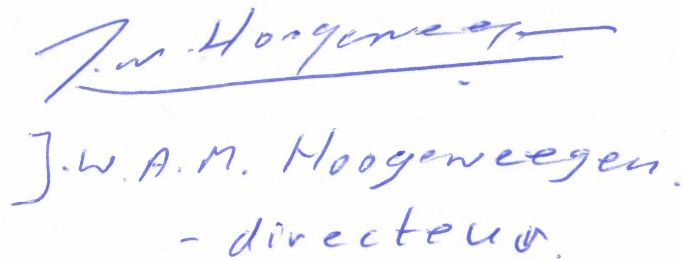 J.W. Hoogeweegen
J.W.A.M. Hoogeweegen.
- directeur.